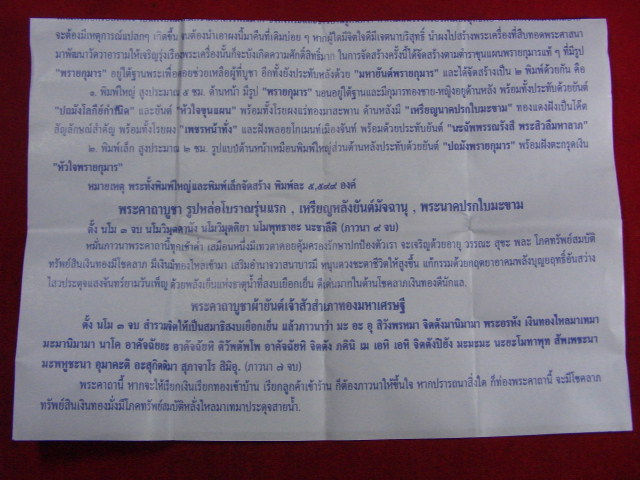 จะต้องมีเหตุการณ์แปลกๆ เกิดขึ้น จนต้องนำเอาผงนี้มาคืนที่เดิมบ่อย ๆ หากผู้ใดมีจิตใจดีมีเจตนาบริสุทธิ์ นำผงไปสร้างพระเครื่องที่สืบทอดพระศาสนา
มาพัฒนาวัดวาอารามให้เจริญรุ่งเรืองพระเครื่องนั้นก็จะบังเกิดความศักดิ์สิทธิ์มาก ในการจัดสร้างครั้งนี้ได้จัดสร้างตามตำราขุนแผนพรายกุมารแท้ ๆ ที่มีรูป
"พรายกุมาร" อยู่ใต้ฐานพระเพื่อคอยช่วยเหลือผู้ที่บูชา อีกทั้งยังประทับหลังด้วย "มหายันต์พรายกุมาร" และได้จัดสร้างเป็น ๒ พิมพ์ด้วยกัน คือ
๑. พิมพ์ใหญ่ สูงประมาณ ๕ ซม. ด้านหน้า มีรูป "พรายกุมาร" นอนอยู่ใต้ฐานและมีกุมารทองชาย-หญิงอยู่ด้านหลัง พร้อมทั้งประทับด้วยยันต์
"ปถมังโลกีย์กำชีมิด" และยันต์ "หัวใจขุนแผน" พร้อมทั้งโรยผงแร่ทองมาละพาน ด้านหลังมี "เหรียญนาคปรกใบมะขาม" ทองแดงฝังเป็นโค้ด
สัญลักษณ์สำคัญ พร้อมทั้งโรยผง "เพชรหน้าทั่ง" และฝังพลอยไกเมนท์เมืองจันท์ พร้อมด้วยประทับยันต์ "นะฉัพพรรณรังสี พระสิวลีมหาลาภ"
๒. พิมพ์เล็ก สูงประมาณ ๒ ซม. รูปแบบด้านหน้าเหมือนพิมพ์ใหญ่ส่วนด้านหลังประทับด้วยยันต์ "ปถมังพรายกุมาร" พร้อมฝังตะกรุดเงิน
"หัวใจพรายกุมาร"
หมายเหตุ พระทั้งพิมพ์ใหญ่และพิมพ์เล็กจัดสร้าง พิมพ์ละ ๕,๕๙๙ องค์
พระคาถาบูชา รูปหล่อโบราณรุ่นแรก , เหรียญหลังยันต์มัจฉานุ , พระนาคปรกใบมะขาม
ตั้ง นโม ๓ จบ นโมวิมุตตานัง นโมวิมุตติยา นโมพุทธายะ นะชาลีติ (ภาวนา ๙ จบ)
หมั่นภาวนาพระคาถานี้ทุกเช้าค่ำ เสมือนหนึ่งมีเทวดาคอยคุ้มครองรักษาปกป้องตัวเรา จะเจริญด้วยอายุ วรรณะ สุขะ พละ โภคทรัพย์สมบัติ
ทรัพย์สินเงินทองมีโชคลาภ มีเงินมีทองไหลเข้ามา เสริมอำนาจวาสนาบารมี หนุนดวงชะตาชีวิตให้สูงขึ้น แก้กรรมด้วยกฤตยาอาคมพลังบุญยฤทธิ์อันสว่าง
ไสวประดุจแสงจันทร์ยามวันเพ็ญ ด้วยพลังเย็นแห่งธาตุน้ำที่สงบเยือกเย็น ดีเด่นมากในด้านโชคลาภเงินทองดีนักแล.
พระคาถาบูชาผ้ายันต์เจ้าสัวสำเภาทองมหาเศรษฐี
ตั้ง นโม ๓ จบ สำรวมจิตให้เป็นสมาธิสงบเยือกเย็น แล้วภาวนาว่า มะ อะ อุ สิวังพรหมา จิตตังมานิมามา พระอรหัง เงินทองไหลมาเทมา
มะมานิมามา นาโค อาคัจฉัยยะ อาคัจฉัยหิ ติวัพตัพโพ อาคัจฉัยหิ จิตตัง ภคินิ เม เอหิ เอหิ จิตตังปิยัง มะมะมะ นะอะโมทาพุท สัพเพชะนา
มะพหูชะนา อุมาคะติ อะสุกิตติมา สุภาจาโร สิมิอุ. (ภาวนา ๗ จบ)
พระคาถานี้ หากจะให้เรียกเงินเรียกทองเข้าบ้าน เรียกลูกค้าเข้าร้าน ก็ต้องภาวนาให้ขึ้นใจ หากปรารถนาสิ่งใด ก็ท่องพระคาถานี้ จะมีโชคลาภ
ทรัพย์สินเงินทองมั่งมีโภคทรัพย์สมบัติหลั่งไหลมาเทมาประดุจสายน้ำ.